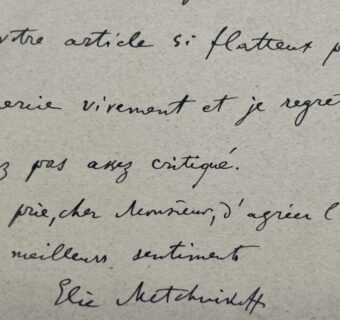 votre article si flatteux p
ercie vivement et je regret
z pas assez critiqué.
prie, cher Monsieur, d'agréer l
meilleurs sentiments
Elie Metchnikoff